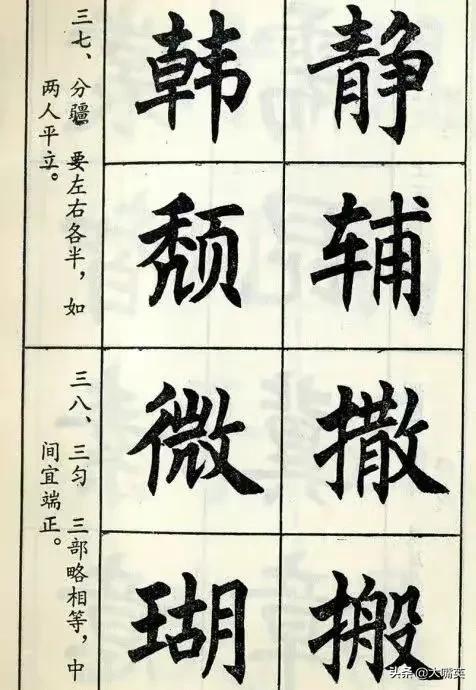 静
辅
韩
颓
三七、分疆 要左右各半，如
两人平立。
撒
搬
微
瑚
三八、三匀 三部略相等，中
间宜端正。
头条 @大嘴英